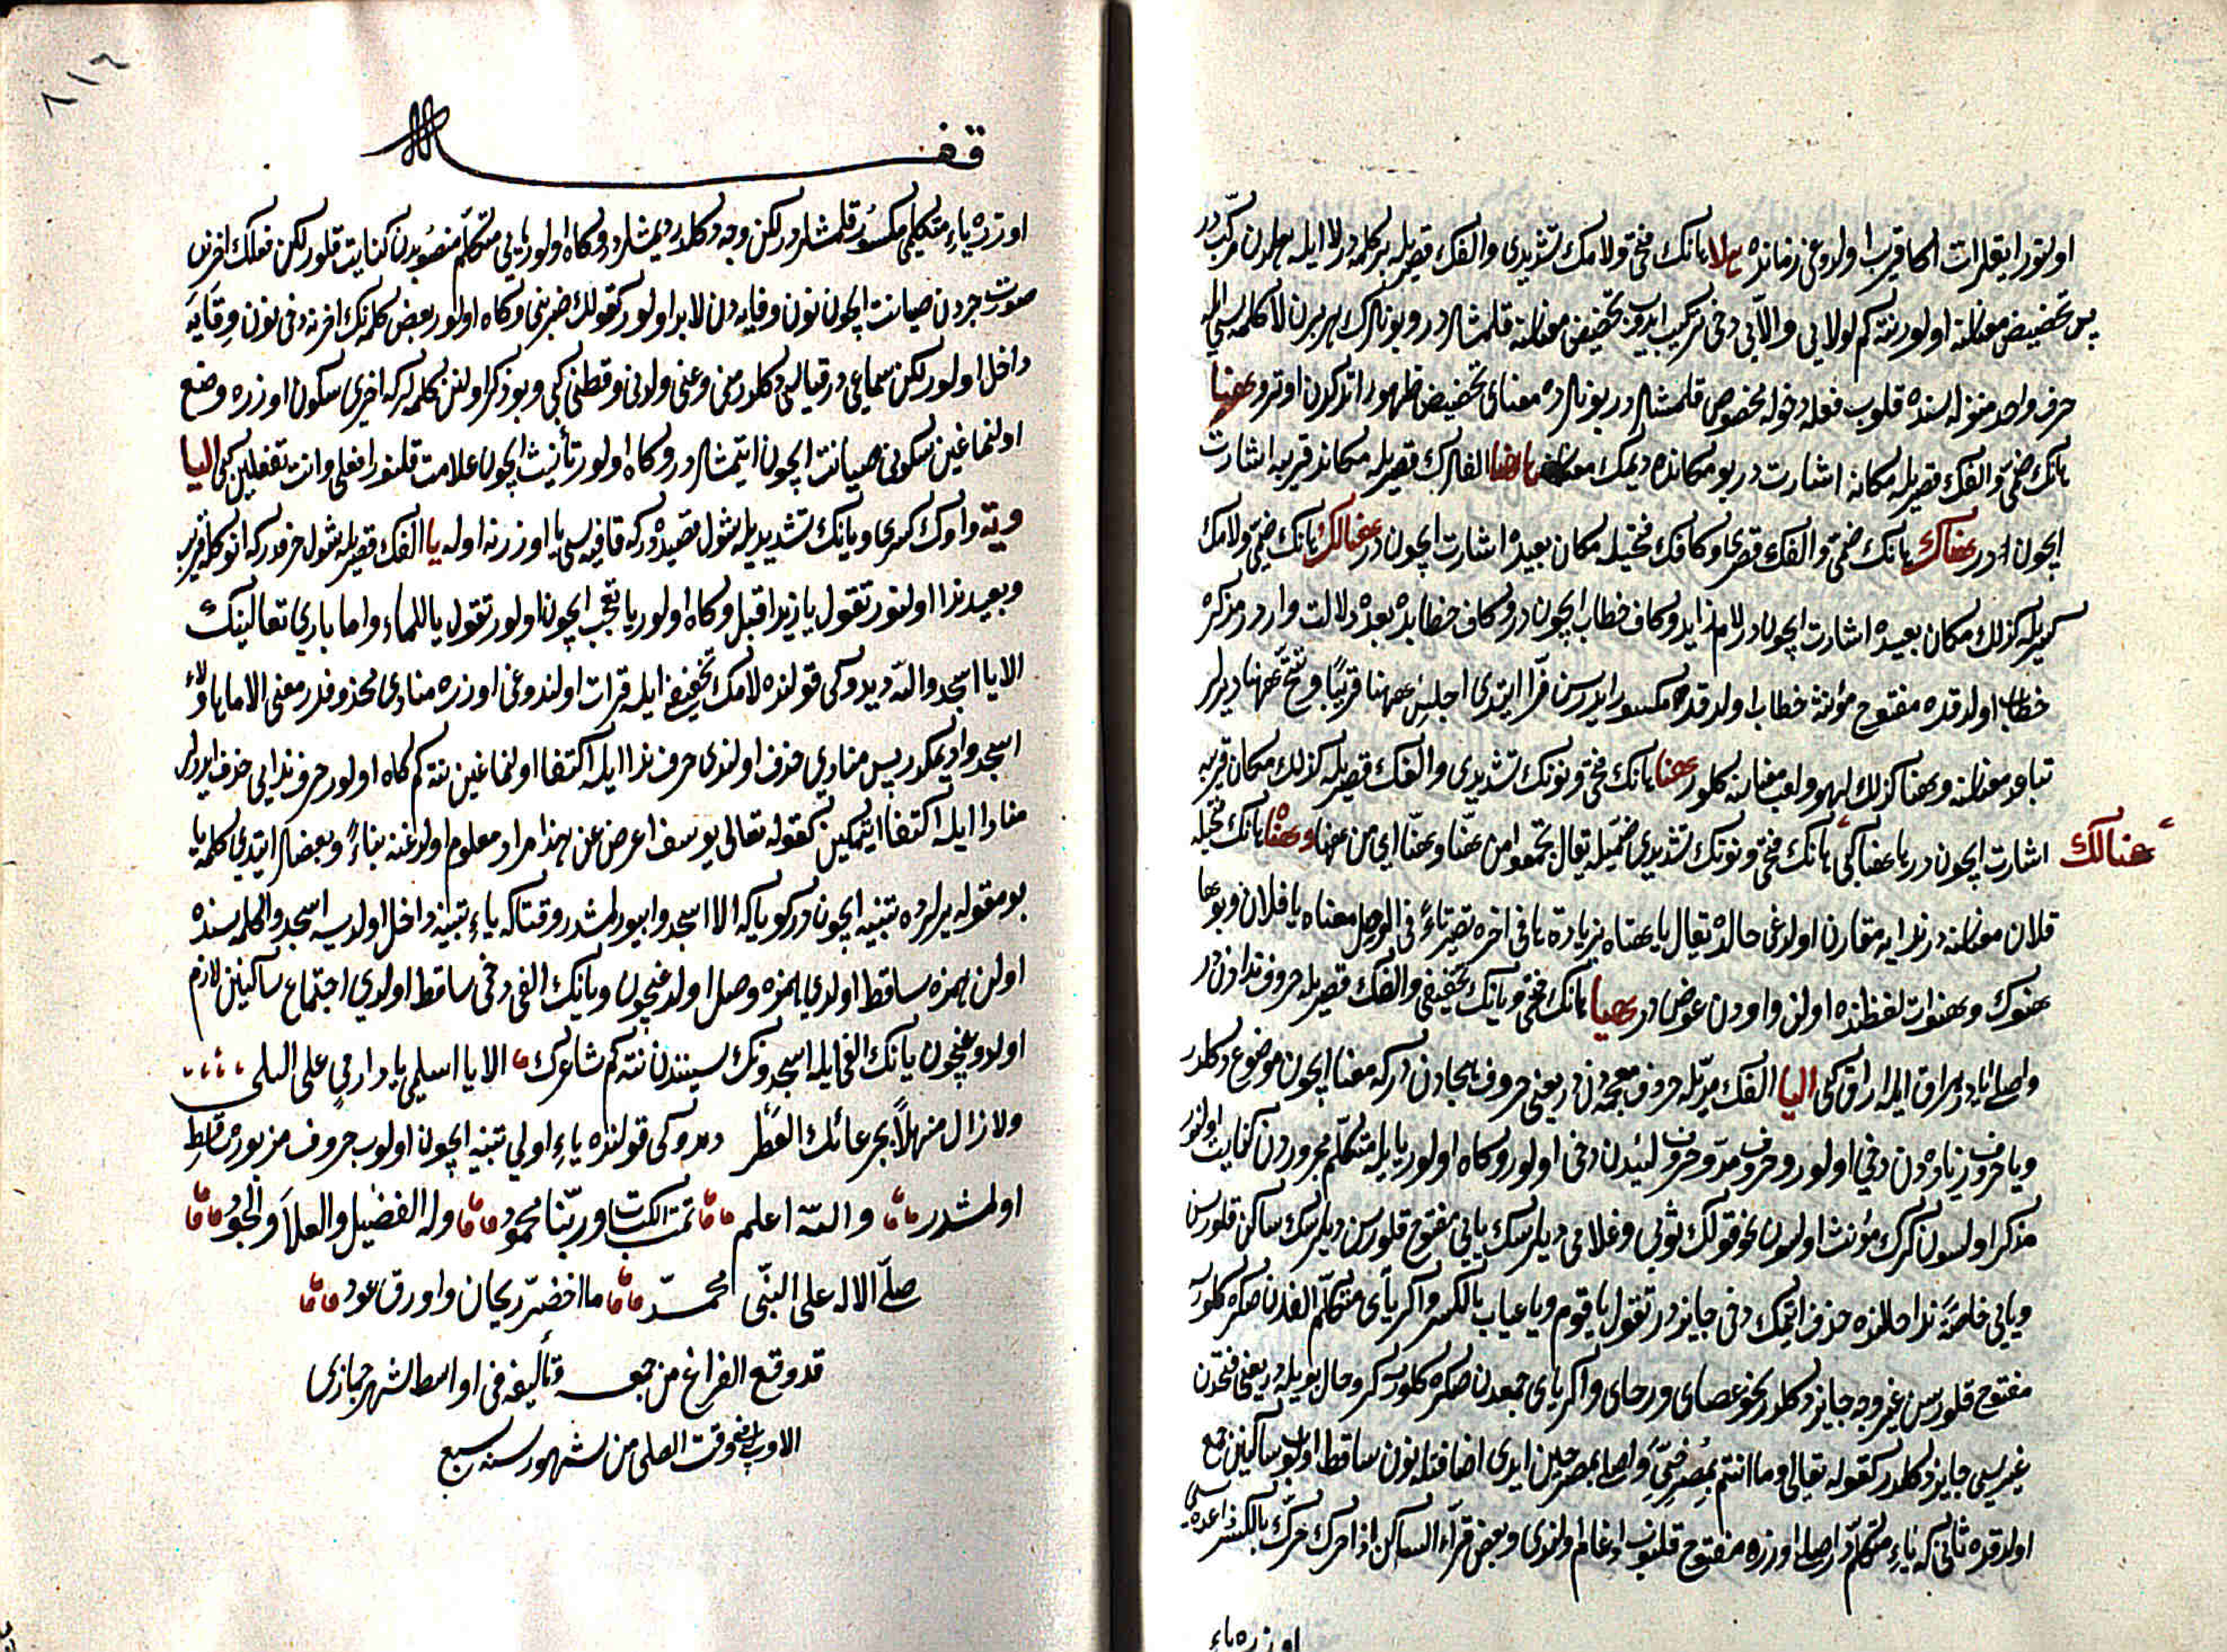 اوتور ایقلرات اکا قریب اولدوغی زمانده هلا هانك فتحی ولامك تشدیدی والفك قصریله بر کلمه در لا ایله هلدن مرکب در
پس تخضیض معناسنه اولور نته کم لولایی والایی دخی ترکیب ایدیب تخضیض معناسنه قلمشلر در وبونلرك هر برن لا کلمه سی ایله
حرف واحد منزله سنده قلوب فعله دخوله مخصوص قلمشلر در بونلرده معنای تخضیض ظهور اتدکدن اوترو هنا
هانك ضمی والفك قصریله مکانه اشارت در بو مکانده دیمك معناسنه هاهنا الفلرك قصریله مکاند قریبه اشارت
ایچون در هناك هانك ضمی والفك قصری وکافك فتحیله مکان بعیده اشارت ایچون در هنالك هانك ضمی ولامك
کسریله کذلك مکان بعیده اشارت ایچون در لام زاید وکاف خطاب ایچون در وکاف خطابده بعده دلالت وارد در مذکره
خطاب اولدقده مفتوح مؤنثه خطاب اولدقده مکسور ایدرسن فرا ایتدی اجلس ههنا قریبا وتنح ههنا دیرلر
تباعد معناسنه وهنا کذلك لهو ولعب معناسنه کلور هنا هانك فتحی ونونك تشدیدی والفك قصریله کذلك مکان قریبه
هنالك
اشارت ایچون در هاهنا کی هانك فتحی ونونك تشدیدی ضمیله یقال تجمعوا من هنا وهنا ای من ههنا وهنا هانك فتحیله
فلان معناسنه در ندایه مقارن اولدغی حالده یقال یا هناه بزیادة ها فی اخره تصیر تاء فی الوصل معناه یا فلان وبوها
هنوك وهنوات لفظنده اولن واودن عوض در هیا هانك فتحی ویانك تخفیفی والفك قصریله حروف ندادن در
واصلی ایادر هراق ایله اراق کی الیا الفك مدیله حروف معجمه دن در یعنی حروف هجادن در که معنا ایچون موضوع دکلدر
ویا حروف زیاده دن دخی اولور وحروف مد وحروف لیندن دخی اولور وکاه اولور یا یله متکلم مجروردن کنایت اولنور
مذکر اولسون کرك مؤنث اولسون نحو قولك ثوبی وغلامی دیلرسك یایی مفتوح قلورسن دیلرسك ساکن قلورسن
ویایی خاصة ندا حالنده حذف ایتمك دخی جایز در تقول یا قوم ویا عباد بالکسر واکر یای متکلم الفدن صکره کلور
مفتوح قلورسن غیر وجه جایز دکلدر نحو عصای ورحای واکر یای جمعدن صکره کلورسه کر وحال بویله در یعنی فتحدن
غیریسی جایز دکلدر کقوله تعالی وما انتم بمصرخی واصلی بمصرخین ایدی اضافتله نون ساقط اولوب ساکنین جمع
اولدقده ثانی که یاء متکلم در اصلی اوزره مفتوح قلنوب ادغام اولندی وبعض قراء الساکن اذا حرك حرك بالکسر قاعده سی
اوزره یاء
٨١٦
اوزره یاء متکلمی مکسور قلمشلردر لکن وجه دکلدر دیمشلر در وکاه اولور یایی متکلم منصوبدن کنایت قلور لکن فعلك اخرین
صوت جردن صیانت ایچون نون وقایه دن لابد اولور کقولك ضربنی وکاه اولور بعض کلمه نك اخرنه دخی نون وقایه
داخل اولور لکن سماعی در قیاسی دکلدر منی وعنی ولدنی وقطنی کبی وبو ذکر اولنن کلمه لرکه اخری سکون اوزره وضع
اولنماغین سکونی صیانت ایچون ایتمشلر در وکاه اولور تأنیث ایچون علامت قلنور افعلی وانت تفعلین کبی الیا
ویة واوك کسری ویانك تشدیدیله شول قصیده در که قافیه سی یا اوزرنه اوله یا الفك قصریله شول حرفدر که انوکله قریب
وبعید ندا اولنور تقول یا زید اقبل وکاه اولور یا تعجب ایچون اولور تقول یا للماء واما باری تعالینك
الا یا اسجدوا لله دیدوکی قولنده لامك تخفیفی ایله قرات اولندوغی اوزره منادی محذوفدر معنی الا یا هاؤلاء
اسجدوا دیمکدر پس منادی حذف اولندی حرف ندا ایله اکتفا اولنماغین نته کم کاه اولور حرف ندایی حذف ایدرلر
منادا ایله اکتفا ایتمکین کقوله تعالی یوسف اعرض عن هذا مراد معلوم اولدغنه بناء وبعضلر ایتدی کلمه یا
بو مقوله یرلرده تنبیه ایچون در کویا که الا اسجدوا بیورلمشدر وقتاکه یاء تنبیه داخل اولدیسه اسجدوا کلمه سنده
اولن همزه ساقط اولدی همزه وصل اولدغیچون ویانك الفی دخی ساقط اولدی اجتماع ساکنین لازم
اولدوغیچون یانك الفی ایله اسجدونك سینندن نته کم شاعرك الا یا اسلمی یا دار می علی البلی
ولا زال منهلا بجرعائك القطر دیدوکی قولنده یاء اولی تنبیه ایچون اولوب حروف مزبوره ساقط
اولمشدر والله اعلم تمت الکتاب وربنا محمود وله الفضل والعلا والجود
صلی الاله علی النبی محمد ما اخضر ریحان واورق عود
قد وقع الفراغ من جمعه وتألیفه فی اواسط شهر جماذی
الاولی فی وقت الصلی من شهور سنه سبع